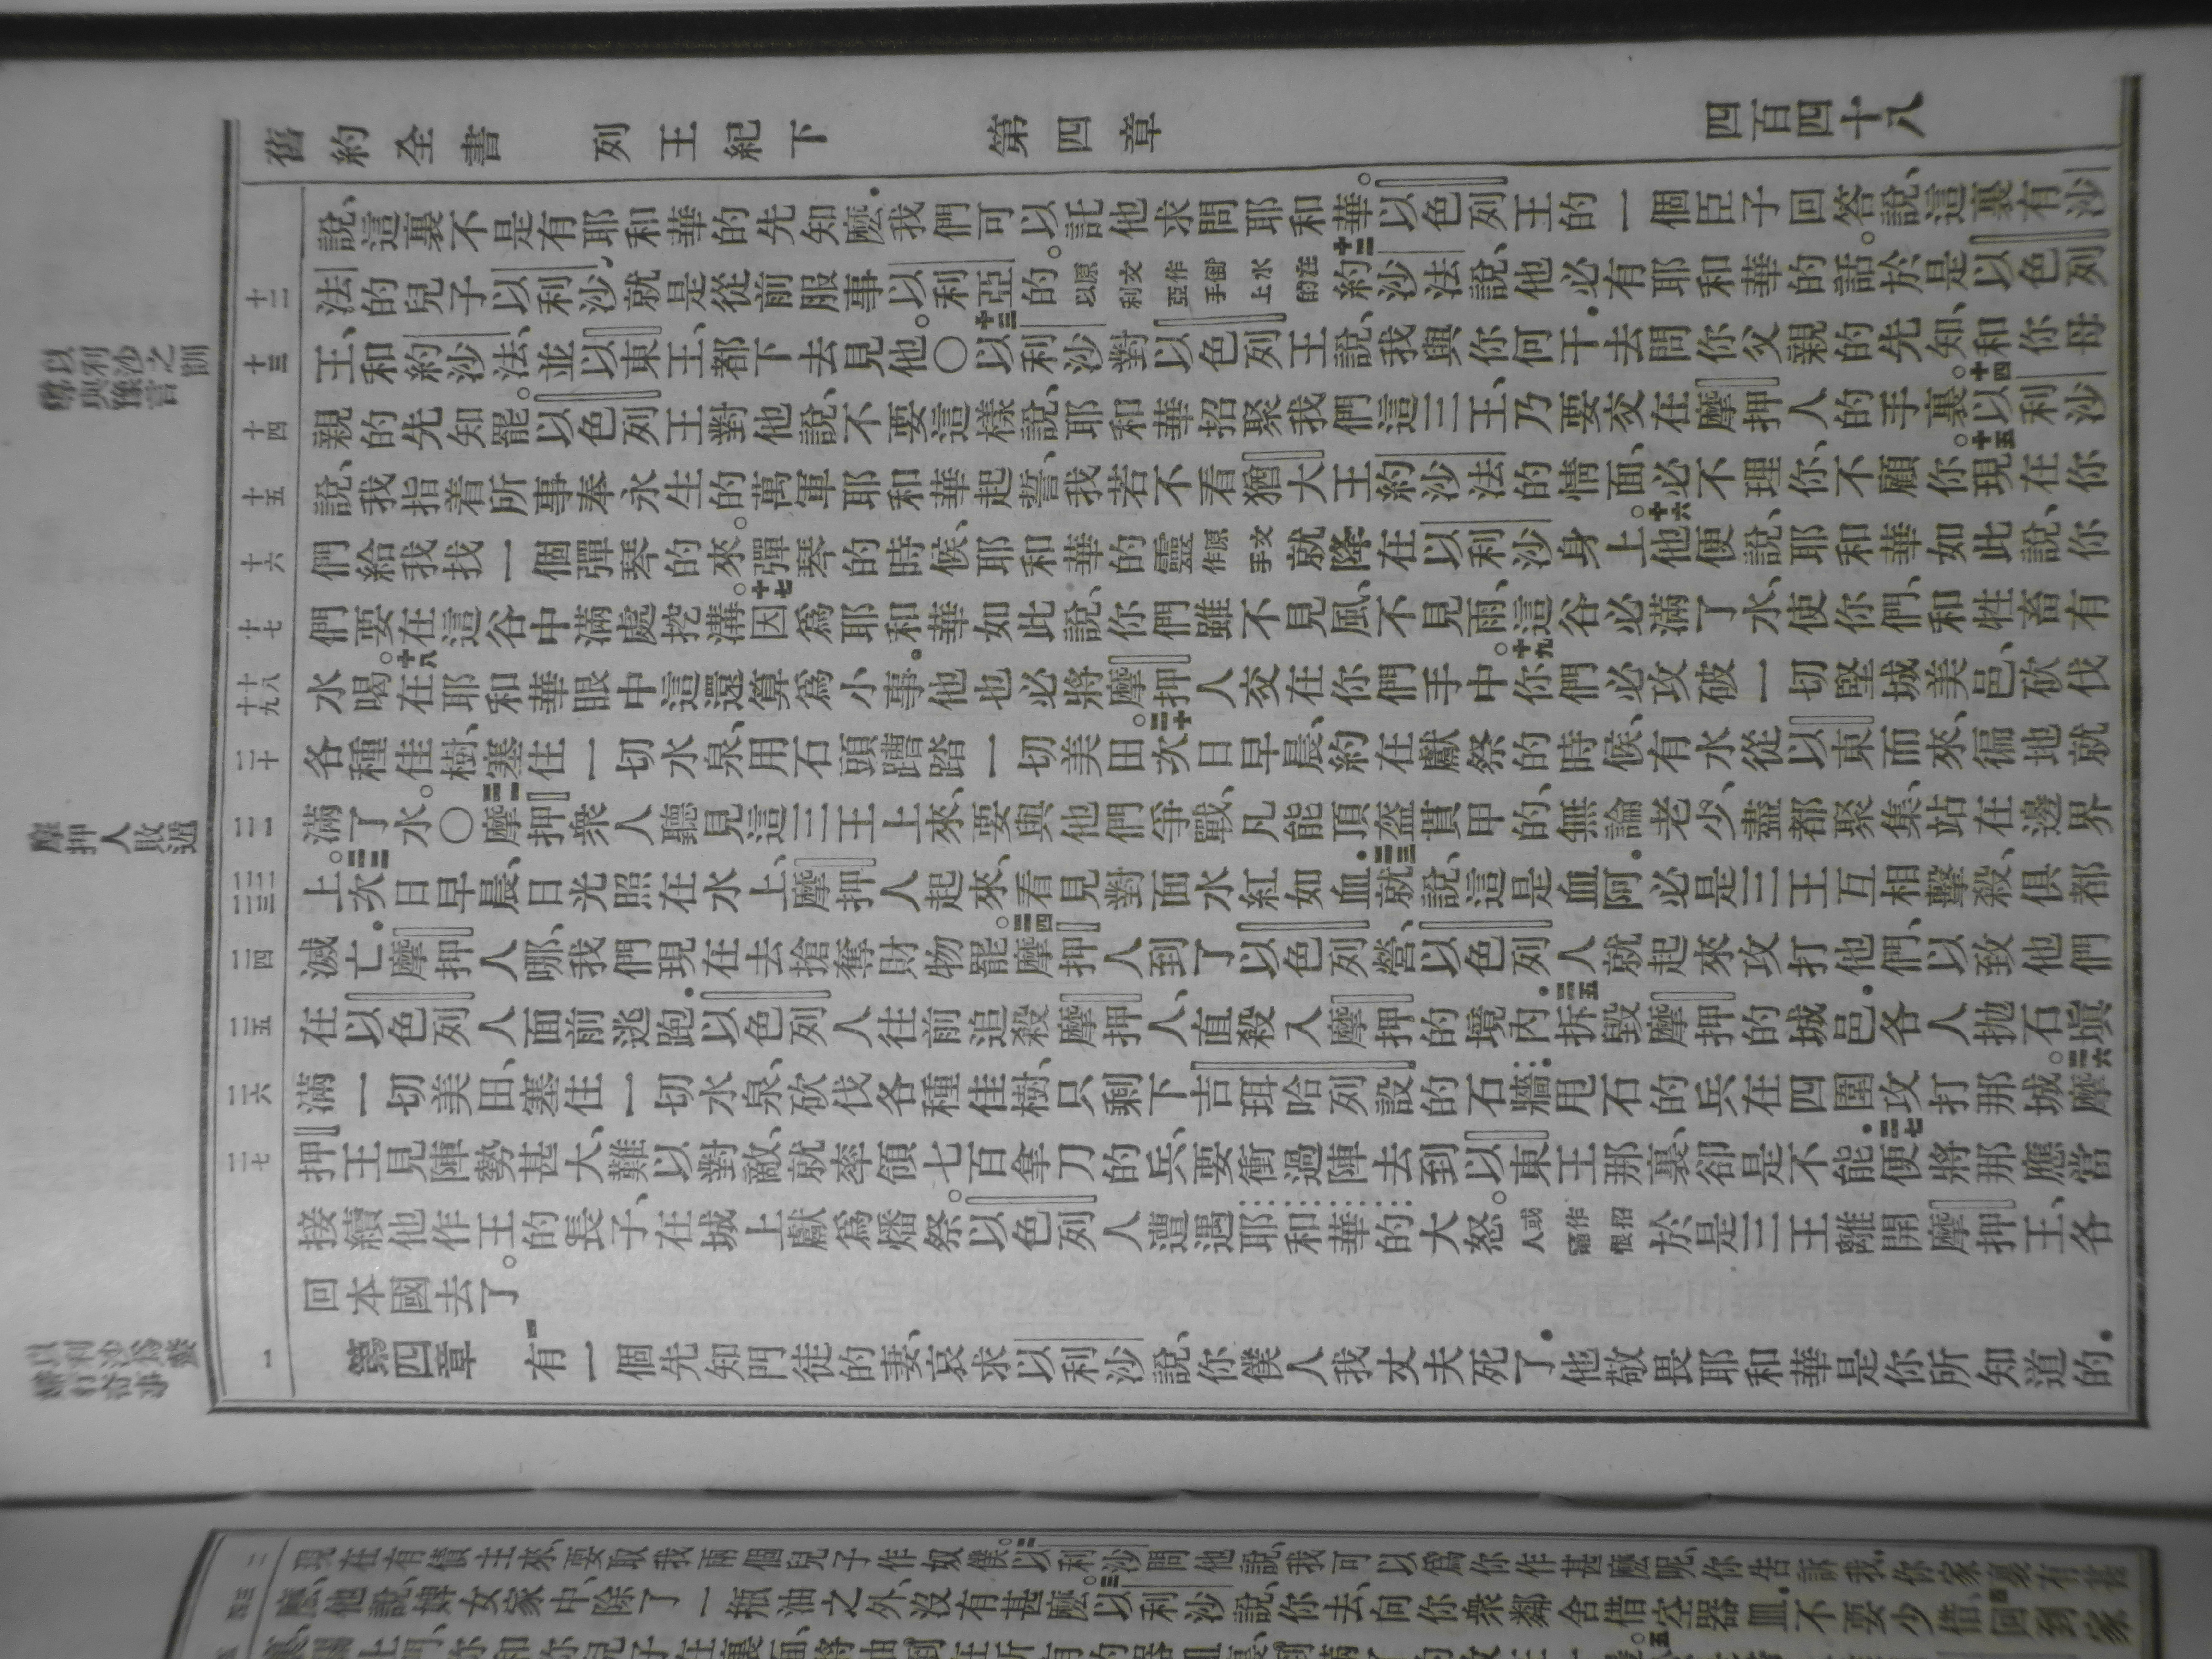 舊約全書 列王紀下 第四章 四百四十八
說、這裏不是有耶和華的先知麼．我們可以託他求問耶和華。以色列王的一個臣子回答說、這裏有沙
十二
法的兒子以利沙、就是從前服事以利亞的。原文作倒水在以利亞手上的十二約沙法說、他必有耶和華的話。於是以色列
以利沙之訓與豫言
十三
王、和約沙法、並以東王、都下去見他。〇十三以利沙對以色列王說、我與你何干．去問你父親的先知、和你母
十四
親的先知罷。以色列王對他說、不要這樣說、耶和華招聚我們這三王、乃要交在摩押人的手裏。十四以利沙
十五
說、我指着所事奉永生的萬軍耶和華起誓、我若不看猶大王約沙法的情面、必不理你、不顧你。十五現在你
十六
們給我找一個彈琴的來。彈琴的時候、耶和華的靈原文作手就降在以利沙身上。十六他便說、耶和華如此說、你
十七
們要在這谷中滿處挖溝。十七因爲耶和華如此說、你們雖不見風、不見雨、這谷必滿了水、使你們、和牲畜有
十八 十九
水喝。十八在耶和華眼中這還算爲小事．他也必將摩押人交在你們手中。十九你們必攻破一切堅城美邑、砍伐
二十
各種佳樹、塞住一切水泉、用石頭蹧踏一切美田。二十次日早晨、約在獻祭的時候、有水從以東而來、徧地就
摩押人敗遁
二一
滿了水。〇二一摩押衆人聽見這三王上來、要與他們爭戰、凡能頂盔貫甲的、無論老少、盡都聚集、站在邊界
二二 二三
上。二二次日早晨、日光照在水上、摩押人起來、看見對面水紅如血．二三就說、這是血阿．必是三王互相擊殺、俱都
二四
滅亡．摩押人哪、我們現在去搶奪財物罷。二四摩押人到了以色列營、以色列人就起來攻打他們、以致他們
二五
在以色列人面前逃跑．以色列人往前追殺摩押人、直殺入摩押的境內．二五拆毀摩押的城邑．各人拋石塡
二六
滿一切美田、塞住一切水泉、砍伐各種佳樹、只剩下吉珥哈列設的石牆．甩石的兵在四圍攻打那城。二六摩
二七
押王見陣勢甚大、難以對敵、就率領七百拿刀的兵、要衝過陣去到以東王那裏、卻是不能．二七便將那應當
接續他作王的長子、在城上獻爲燔祭。以色列人遭遇耶和華的大怒。或作招人惱恨於是三王離開摩押王、各
回本國去了。
以利沙爲嫠婦行奇事
一
第四章 一有一個先知門徒的妻、哀求以利沙說、你僕人我丈夫死了．他敬畏耶和華是你所知道的．
二
現在有債主來、要取我兩個兒子作奴僕。二以利沙問他說、我可以爲你作甚麼呢、你告訴我．你家裏有甚
三 四
麼．他說、婢女家中、除了一瓶油之外、沒有甚麼。三以利沙說、你去、向你衆鄰舍借空器皿．不要少借．四回到家